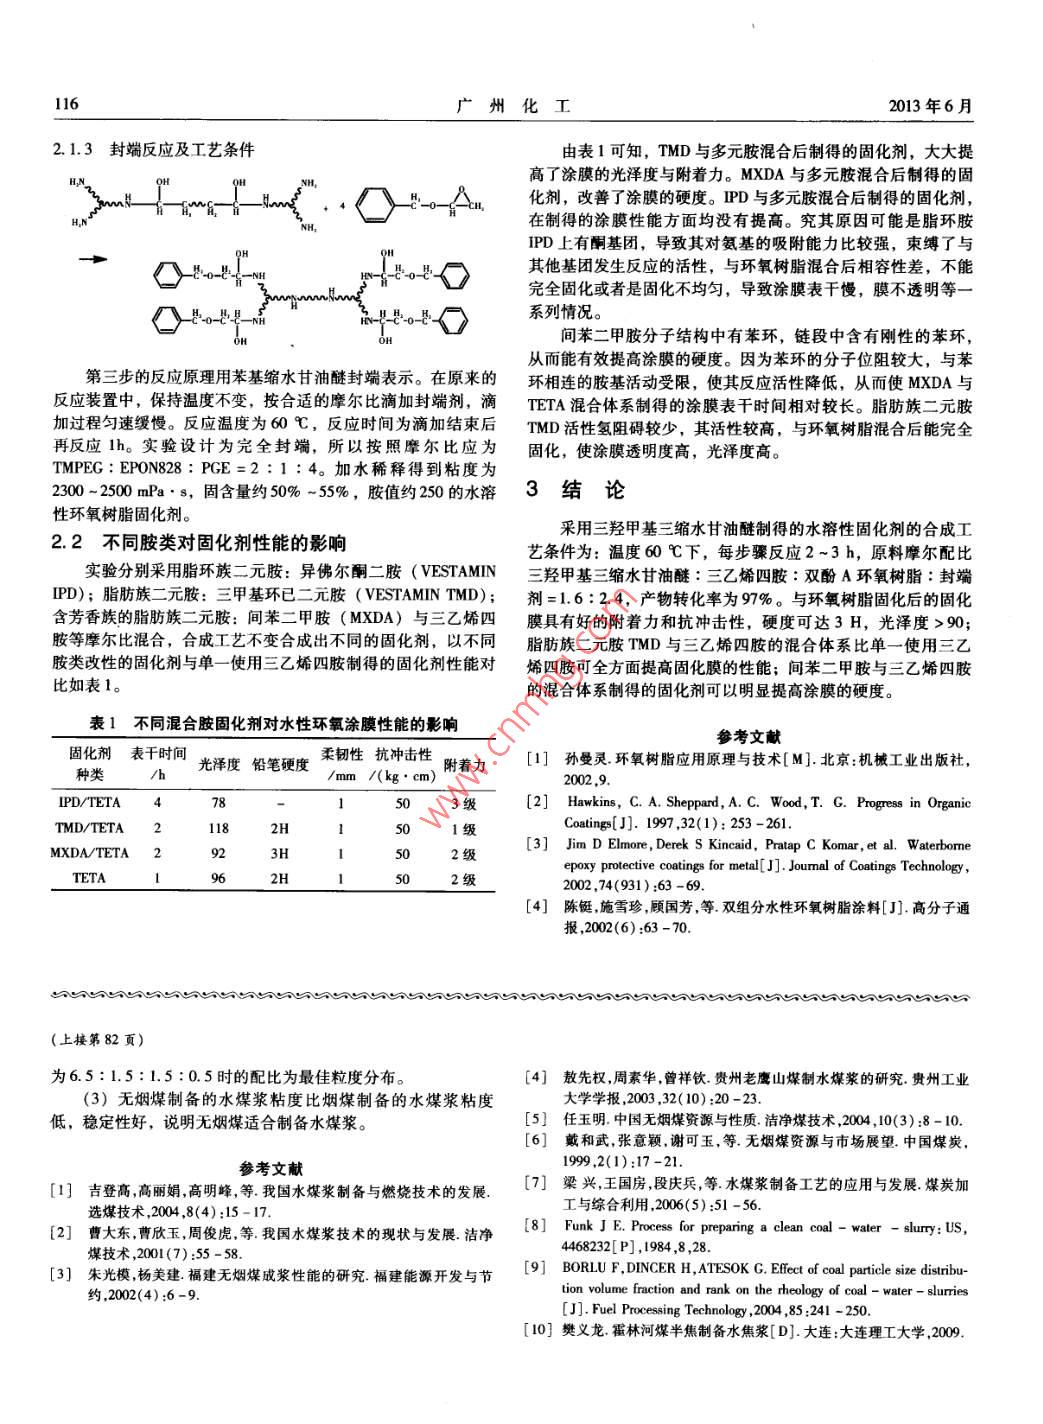 116
广 州 化 工
2013 年 6 月
2. 1. 3 封端反应及工艺条件
第三步的反应原理用苯基缩水甘油醚封端表示。在原来的
反应装置中，保持温度不变，按合适的摩尔比滴加封端剂，滴
加过程匀速缓慢。反应温度为 60 ℃，反应时间为滴加结束后
再反应 1h。实验设计为完全封端，所以按照摩尔比应为
TMPEG：EPON828：PGE = 2 : 1 : 4。加水稀释得到粘度为
2300 ~ 2500 mPa · s，固含量约 50% ~ 55%，胺值约 250 的水溶
性环氧树脂固化剂。
2. 2 不同胺类对固化剂性能的影响
实验分别采用脂环族二元胺：异佛尔酮二胺（VESTAMIN
IPD）；脂肪族二元胺：三甲基环已二元胺（VESTAMIN TMD）；
含芳香族的脂肪族二元胺：间苯二甲胺（MXDA）与三乙烯四
胺等摩尔比混合，合成工艺不变合成出不同的固化剂，以不同
胺类改性的固化剂与单一使用三乙烯四胺制得的固化剂性能对
比如表 1。
表 1 不同混合胺固化剂对水性环氧涂膜性能的影响
固化剂种类 表干时间/h 光泽度 铅笔硬度 柔韧性/mm 抗冲击性/(kg · cm) 附着力
IPD/TETA 4 78 – 1 50 3 级
TMD/TETA 2 118 2H 1 50 1 级
MXDA/TETA 2 92 3H 1 50 2 级
TETA 1 96 2H 1 50 2 级
由表 1 可知，TMD 与多元胺混合后制得的固化剂，大大提
高了涂膜的光泽度与附着力。MXDA 与多元胺混合后制得的固
化剂，改善了涂膜的硬度。IPD 与多元胺混合后制得的固化剂，
在制得的涂膜性能方面均没有提高。究其原因可能是脂环胺
IPD 上有酮基团，导致其对氨基的吸附能力比较强，束缚了与
其他基团发生反应的活性，与环氧树脂混合后相容性差，不能
完全固化或者是固化不均匀，导致涂膜表干慢，膜不透明等一
系列情况。
间苯二甲胺分子结构中有苯环，链段中含有刚性的苯环，
从而能有效提高涂膜的硬度。因为苯环的分子位阻较大，与苯
环相连的胺基活动受限，使其反应活性降低，从而使 MXDA 与
TETA 混合体系制得的涂膜表干时间相对较长。脂肪族二元胺
TMD 活性氢阻碍较少，其活性较高，与环氧树脂混合后能完全
固化，使涂膜透明度高，光泽度高。
3 结 论
采用三羟甲基三缩水甘油醚制得的水溶性固化剂的合成工
艺条件为：温度 60 ℃下，每步骤反应 2 ~ 3 h，原料摩尔配比
三羟甲基三缩水甘油醚：三乙烯四胺：双酚 A 环氧树脂：封端
剂 = 1. 6 : 2. 4，产物转化率为 97%。与环氧树脂固化后的固化
膜具有好的附着力和抗冲击性，硬度可达 3 H，光泽度 > 90；
脂肪族二元胺 TMD 与三乙烯四胺的混合体系比单一使用三乙
烯四胺可全方面提高固化膜的性能；间苯二甲胺与三乙烯四胺
的混合体系制得的固化剂可以明显提高涂膜的硬度。
参考文献
[1] 孙曼灵. 环氧树脂应用原理与技术[M]. 北京：机械工业出版社，
2002,9.
[2] Hawkins, C. A. Sheppard, A. C. Wood, T. G. Progress in Organic
Coatings[J]. 1997,32(1): 253 – 261.
[3] Jim D Elmore, Derek S Kincaid, Pratap C Komar, et al. Waterborne
epoxy protective coatings for metal[J]. Journal of Coatings Technology,
2002,74(931):63 – 69.
[4] 陈铤,施雪珍,顾国芳,等. 双组分水性环氧树脂涂料[J]. 高分子通
报,2002(6):63 – 70.
www.cnmhg.com
(上接第 82 页)
为 6. 5 : 1. 5 : 1. 5 : 0. 5 时的配比为最佳粒度分布。
(3) 无烟煤制备的水煤浆粘度比烟煤制备的水煤浆粘度
低，稳定性好，说明无烟煤适合制备水煤浆。
参考文献
[1] 吉登高,高丽娟,高明峰,等. 我国水煤浆制备与燃烧技术的发展.
选煤技术,2004,8(4):15 – 17.
[2] 曹大东,曹欣玉,周俊虎,等. 我国水煤浆技术的现状与发展. 洁净
煤技术,2001(7):55 – 58.
[3] 朱光模,杨美建. 福建无烟煤成浆性能的研究. 福建能源开发与节
约,2002(4):6 – 9.
[4] 敖先权,周素华,曾祥钦. 贵州老鹰山煤制水煤浆的研究. 贵州工业
大学学报,2003,32(10):20 – 23.
[5] 任玉明. 中国无烟煤资源与性质. 洁净煤技术,2004,10(3):8 – 10.
[6] 戴和武,张意颖,谢可玉,等. 无烟煤资源与市场展望. 中国煤炭,
1999,2(1):17 – 21.
[7] 梁 兴,王国房,段庆兵,等. 水煤浆制备工艺的应用与发展. 煤炭加
工与综合利用,2006(5):51 – 56.
[8] Funk J E. Process for preparing a clean coal – water – slurry: US,
4468232[P],1984,8,28.
[9] BORLU F, DINCER H, ATESOK G. Effect of coal particle size distribu-
tion volume fraction and rank on the rheology of coal – water – slurries
[J]. Fuel Processing Technology,2004,85:241 – 250.
[10] 樊义龙. 霍林河煤半焦制备水焦浆[D]. 大连:大连理工大学,2009.